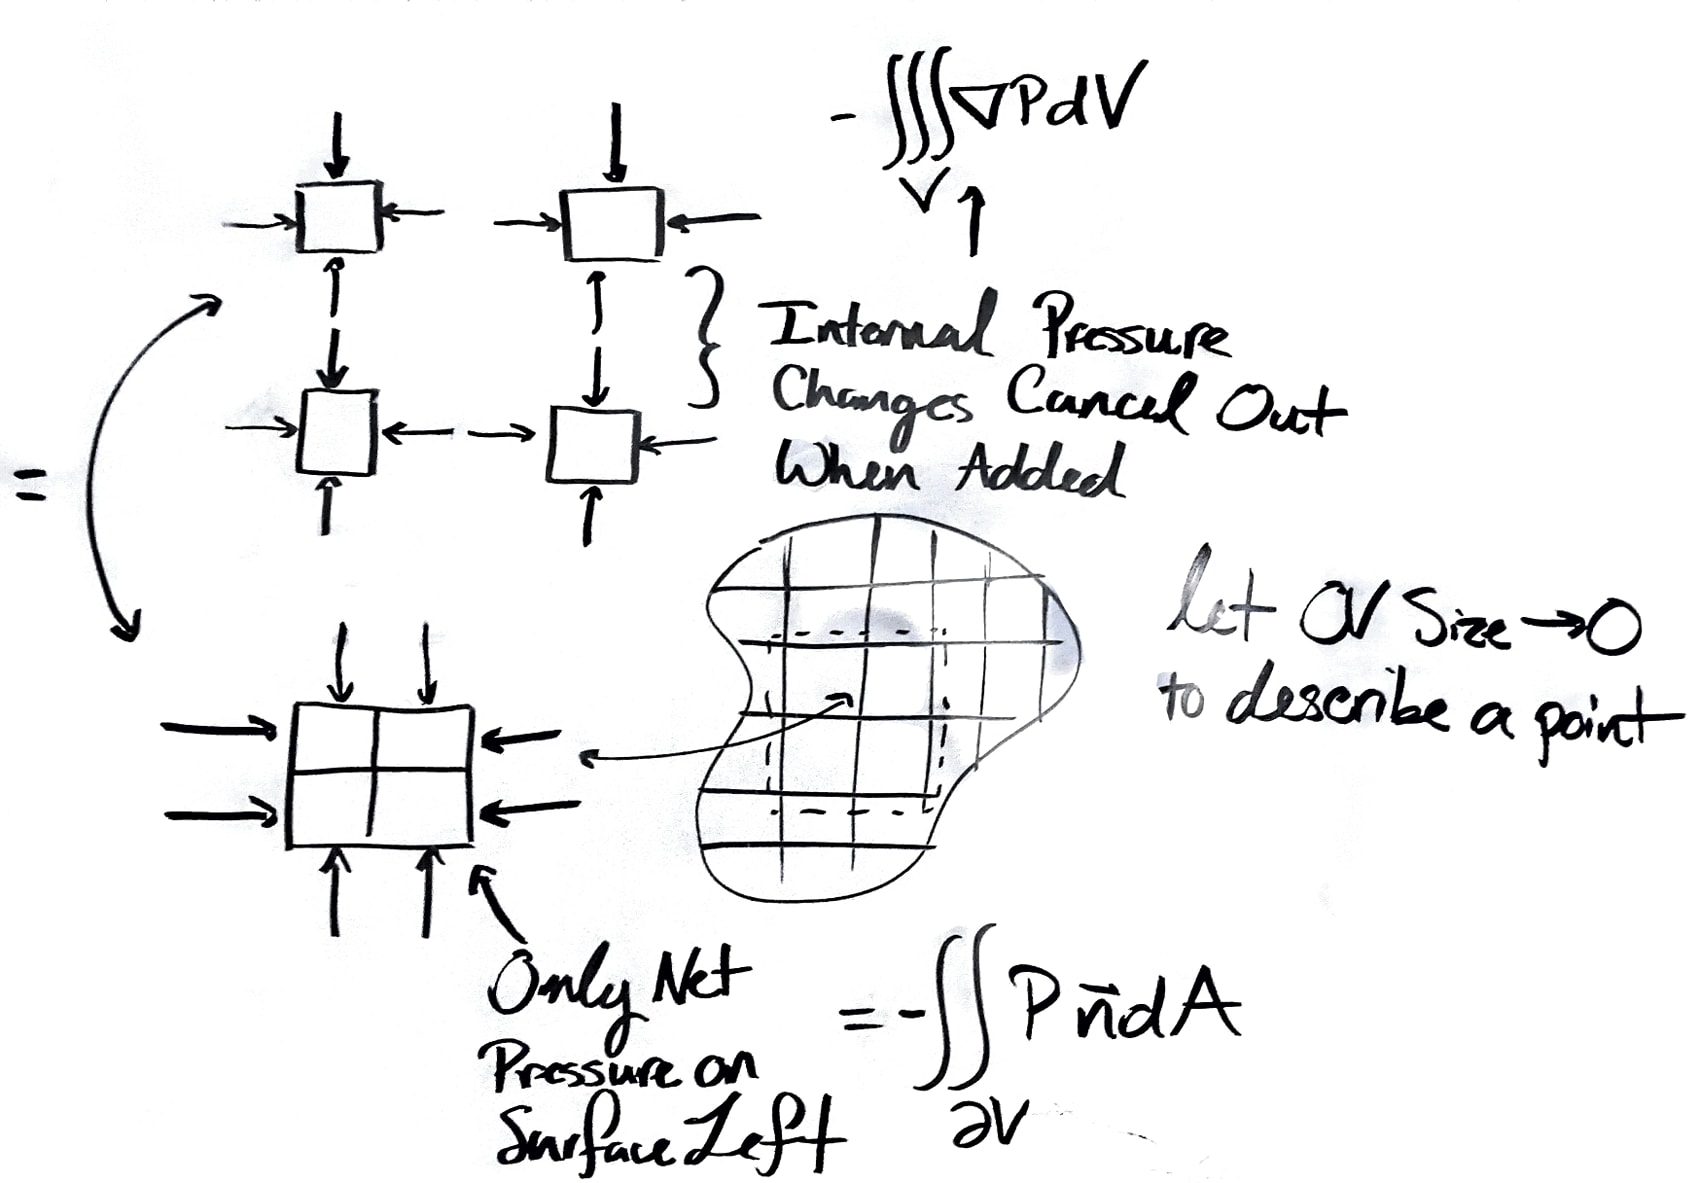 - ∭ ∇PdV
V
Internal Pressure
Changes Cancel Out
When Added
=
let CV Size → 0
to describe a point
Only Net
Pressure on
Surface Left
= - ∬ P n⃗ dA
∂V